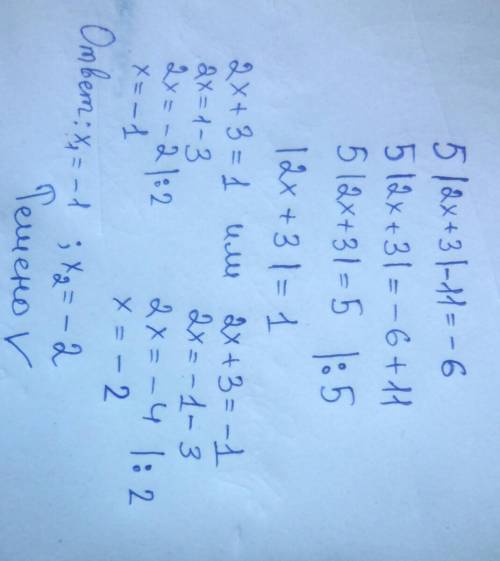 5 |2x+3|-11=-6
5 |2x+3|=-6+11
5 |2x+3|=5 |:5
|2x+3|=1
2x+3=1 или 2x+3=-1
2x=1-3 2x=-1-3
2x=-2|:2 2x=-4 |:2
x=-1 x=-2
Ответ: x₁=-1 ; x₂=-2
Решено √